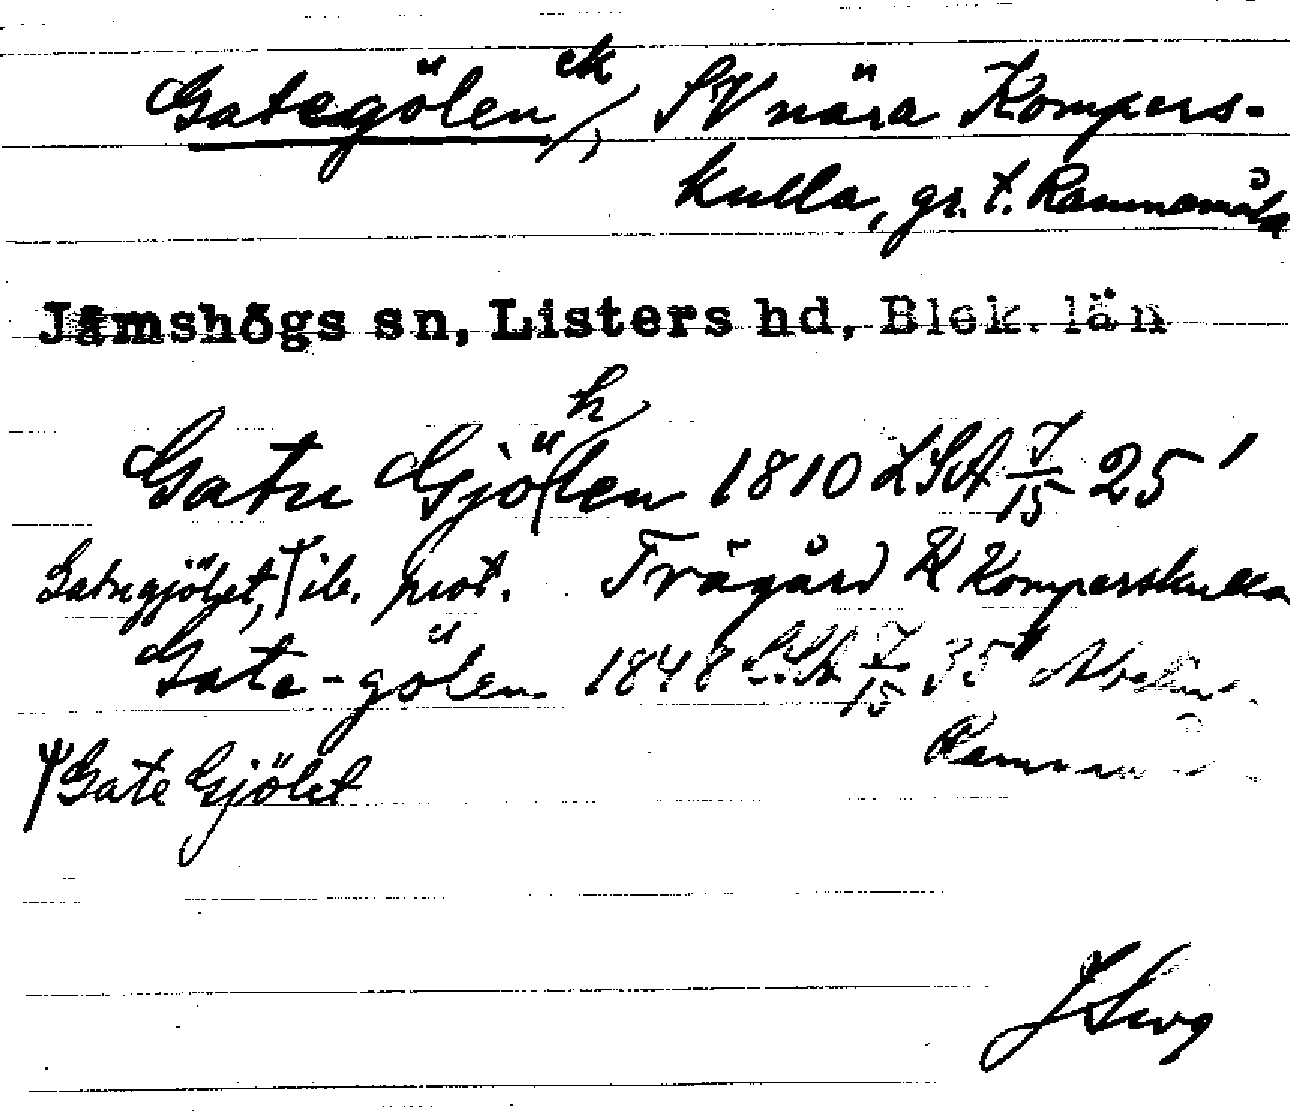 Gategölen ek/, SV nära Kompers-
kulla, gr. t. Ramnamåla
Jämshögs sn, Listers hd, Blek. län
Gatu Gjöhlen 1810 LSA J/15 25'
Gatugjölet, ib. prot. Trägård R Komperskulla
Gate-gölen 1848 LSA J/15 35
Gate Gjölet